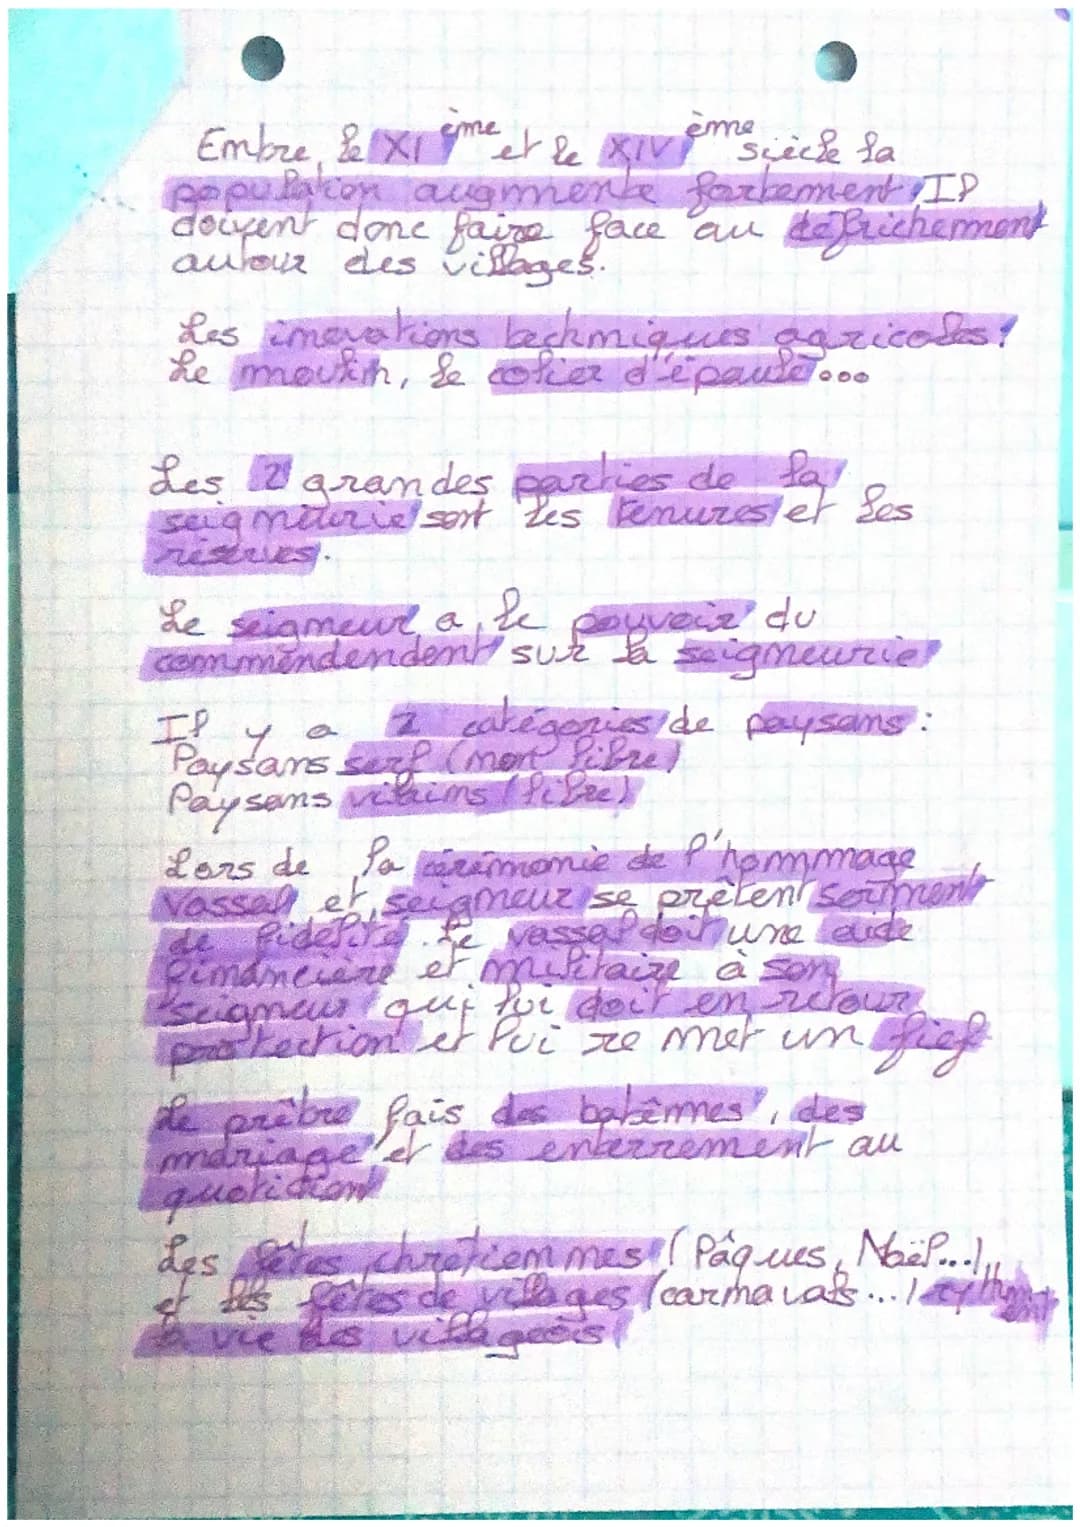 Entre, le XI ème et le XIV ème siècle la
population augmente fortement, Il
doivent donc faire face au défrichement
autour des villages.
Les inovations techniques agricoles:
Le moulin, le colier d'épaule...
Les 2 grandes parties de la
seigneurie sont les Tenures et les
réserves.
Le seigneur a le pouvoir du
commendendent sur la seigneurie
Il y a 2 catégories de paysans :
Paysans serf (non libre)
Paysans vilains (libre)
Lors de la cérémonie de l'hommmage
vassal et seigneur se prêtent serment
de fidélité. Le vassal doit une aide
financière et militaire à son
seigneur qui lui doit en retour
protection et lui re met un fief
Le prêtre fais des batêmes, des
mariage et des enterrement au
quotidient
Les fêtes chretiennes (Pâques, Noël...)
et les fêtes de villages (carnavals...) rythment
la vie des villageois